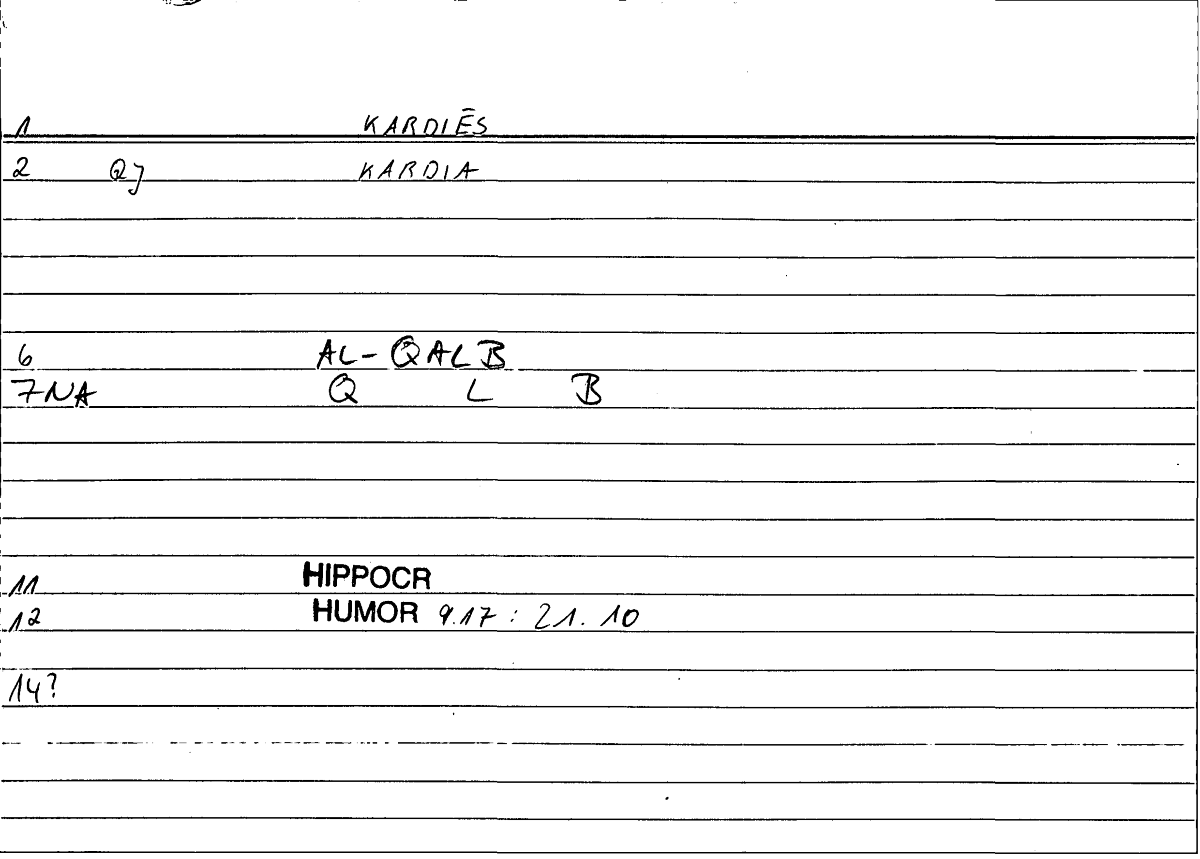 1 KARDIĒS
2 Qj KARDIA
6 AL-QALB
7NA Q L B
11 HIPPOCR
12 HUMOR 9.17 : 21.10
14?